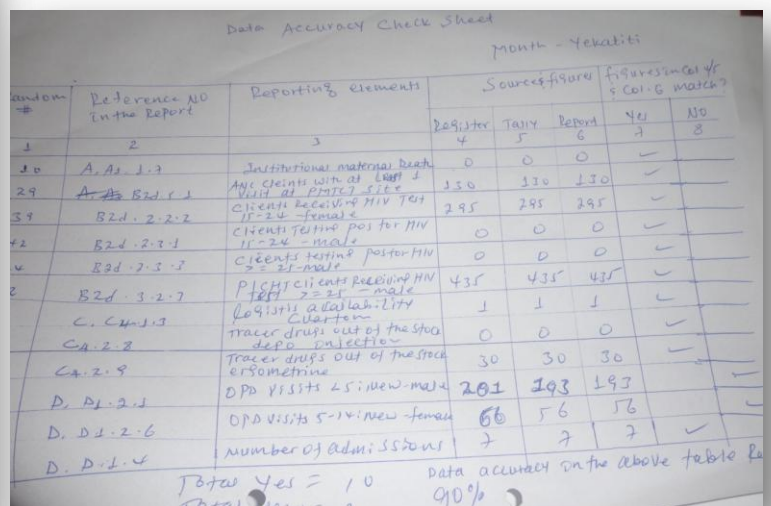 Data Accuracy Check Sheet
Month - Yekatiti
andom # Reference NO in the Report Reporting elements Sources figures figures in Col 4/5 & Col. 6 match?
Register Tally Report Yes NO
1 2 3 4 5 6 7 8
10 A. A1. 1.7 Institutional maternal Death 0 0 0 ✓
29 B2d. 5.1 ANC Cleints with at 1 Visit at PMTCT site 130 130 130 ✓
B2d. 2.2.2 Clients Receiving HIV Test 15-24 -female 295 295 295 ✓
B2d. 2.3.1 Clients Testing pos for HIV 15-24 -male 0 0 0 ✓
B2d. 2.3.3 Clients testing pos for HIV >= 25-male 0 0 0 ✓
B2d. 3.2.7 PICHT Clients Receiving HIV test >=25 -male 435 435 435 ✓
C. C4.1.3 Logistis availability 1 1 1 ✓
C4.2.8 Tracer drugs out of the stock depo injection 0 0 0 ✓
C4.2.9 Tracer drugs out of the stock ergometrine 30 30 30 ✓
D. D1.2.1 OPD visits <5: new-male 201 193 193 ✓
D. D1.2.6 OPD visits 5-14: new -female 66 56 56 ✓
D. D.1.4 Number of admissions 7 7 7 ✓
Total Yes = 10 Data accuracy in the above table
90%